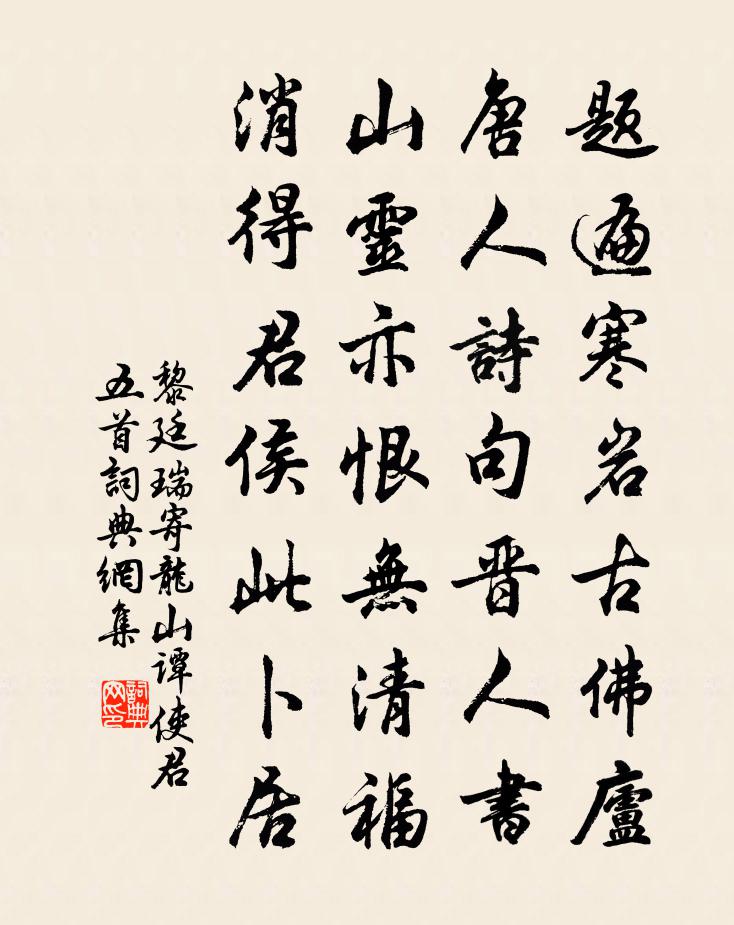 題遍寒岩古佛廬
唐人詩句晋人書
山靈亦恨無清福
消得君侯此卜居
黎廷瑞寄龍山譚使君
五首詞典網集
詞典
网印